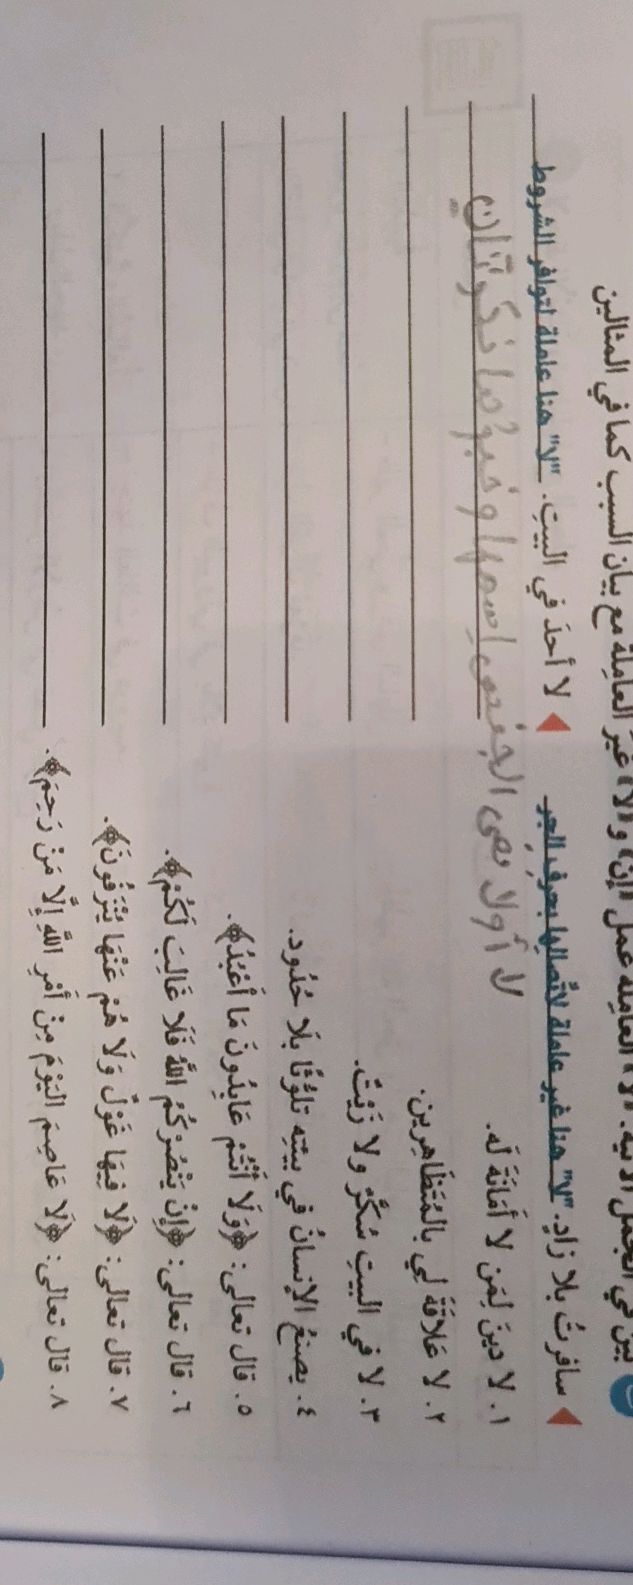 بيّن في الجمل الآتية: "لا" العاملة عمل "إنّ" و"لا" غيرَ العاملة مع بيان السبب كما في المثالين
◀ سافرتُ بلا زادٍ. "لا" هنا غير عاملة لاتّصالها بحرف الجر
◀ لا أحدَ في البيتِ. "لا" هنا عاملة لتوافر الشروط
١. لا دينَ لِمَن لا أمَانَةَ لَه.
لا أولا نفي الجنس اسمها وخبرها نكرتان
٢. لا عَلاقَةَ لِي بالمُتَظَاهِرين.
٣. لا في البيتِ سُكَّرٌ ولا زَيْتٌ.
٤. يصنعُ الإنسانُ في بيئتِه تلوُّثًا بِلَا حُدُود.
٥. قال تعالى: ﴿وَلَا أَنْتُمْ عَابِدُونَ مَا أَعْبُدُ﴾.
٦. قال تعالى: ﴿إِنْ يَنْصُرْكُمُ اللَّهُ فَلَا غَالِبَ لَكُمْ﴾.
٧. قال تعالى: ﴿لَا فِيهَا غَوْلٌ وَلَا هُمْ عَنْهَا يُنْزَفُونَ﴾.
٨. قال تعالى: ﴿لَا عَاصِمَ الْيَوْمَ مِنْ أَمْرِ اللَّهِ إِلَّا مَنْ رَحِمَ﴾.